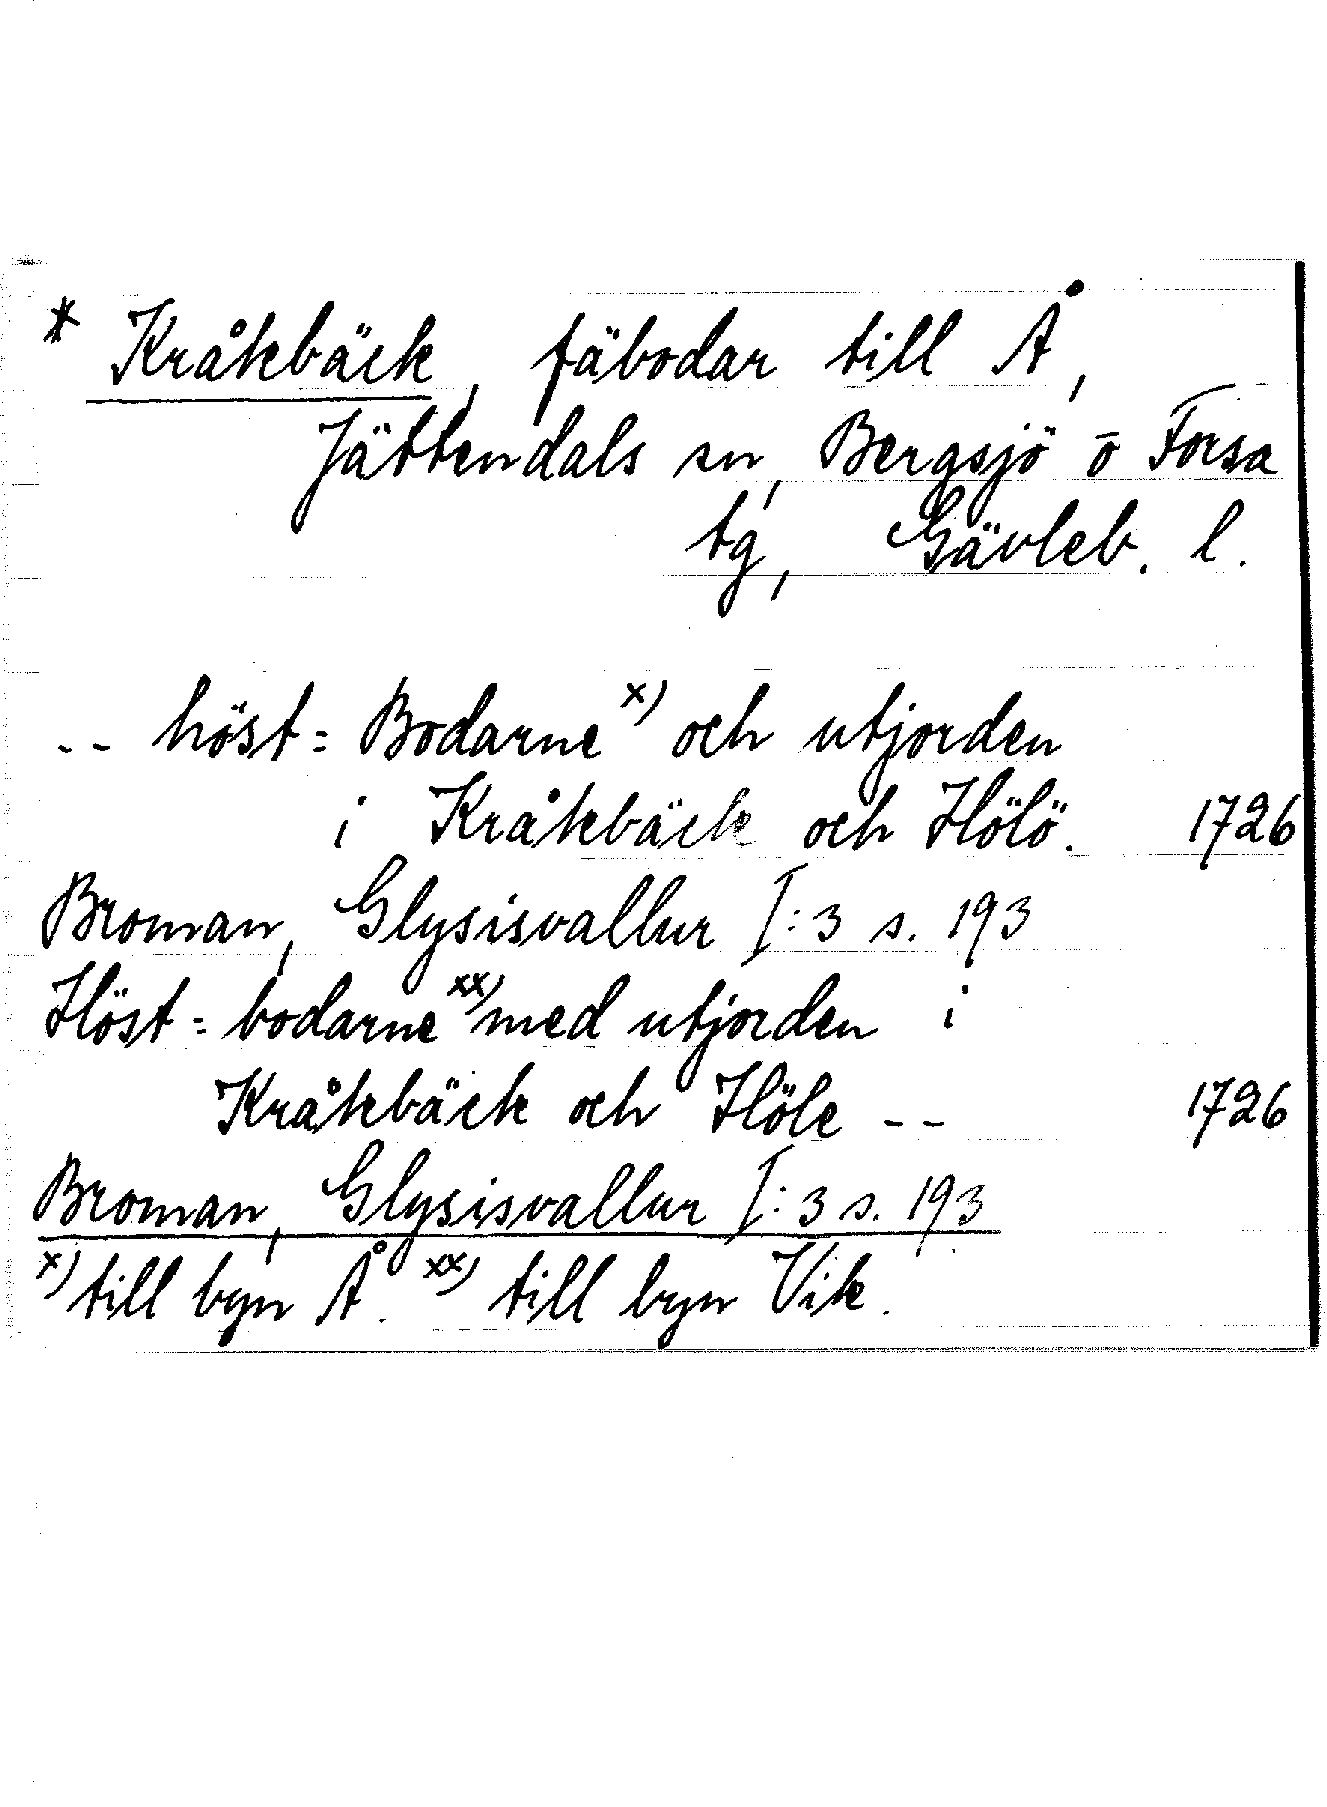 * Kråkbäck, fäbodar till Å,
Jättendals sn, Bergsjö o Forsa
tg, Gävleb. l.
-- höst= Bodarne x) och utjorden
i Kråkbäck och Hölö. 1726
Broman, Glysisvallur I:3 s. 193
Höst= bodarne xx) med utjorden i
Kråkbäck och Höle -- 1726
Broman, Glysisvallur I:3 s. 193
x) till byn Å. xx) till byn Vik.